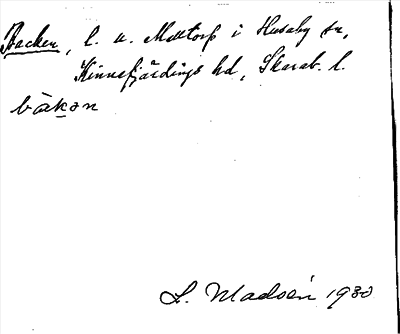 Backen, l. u. Mattorp i Husaby sn,
Kinnefjärdings hd, Skarab. l.
bàkən
L. Madsén 1930